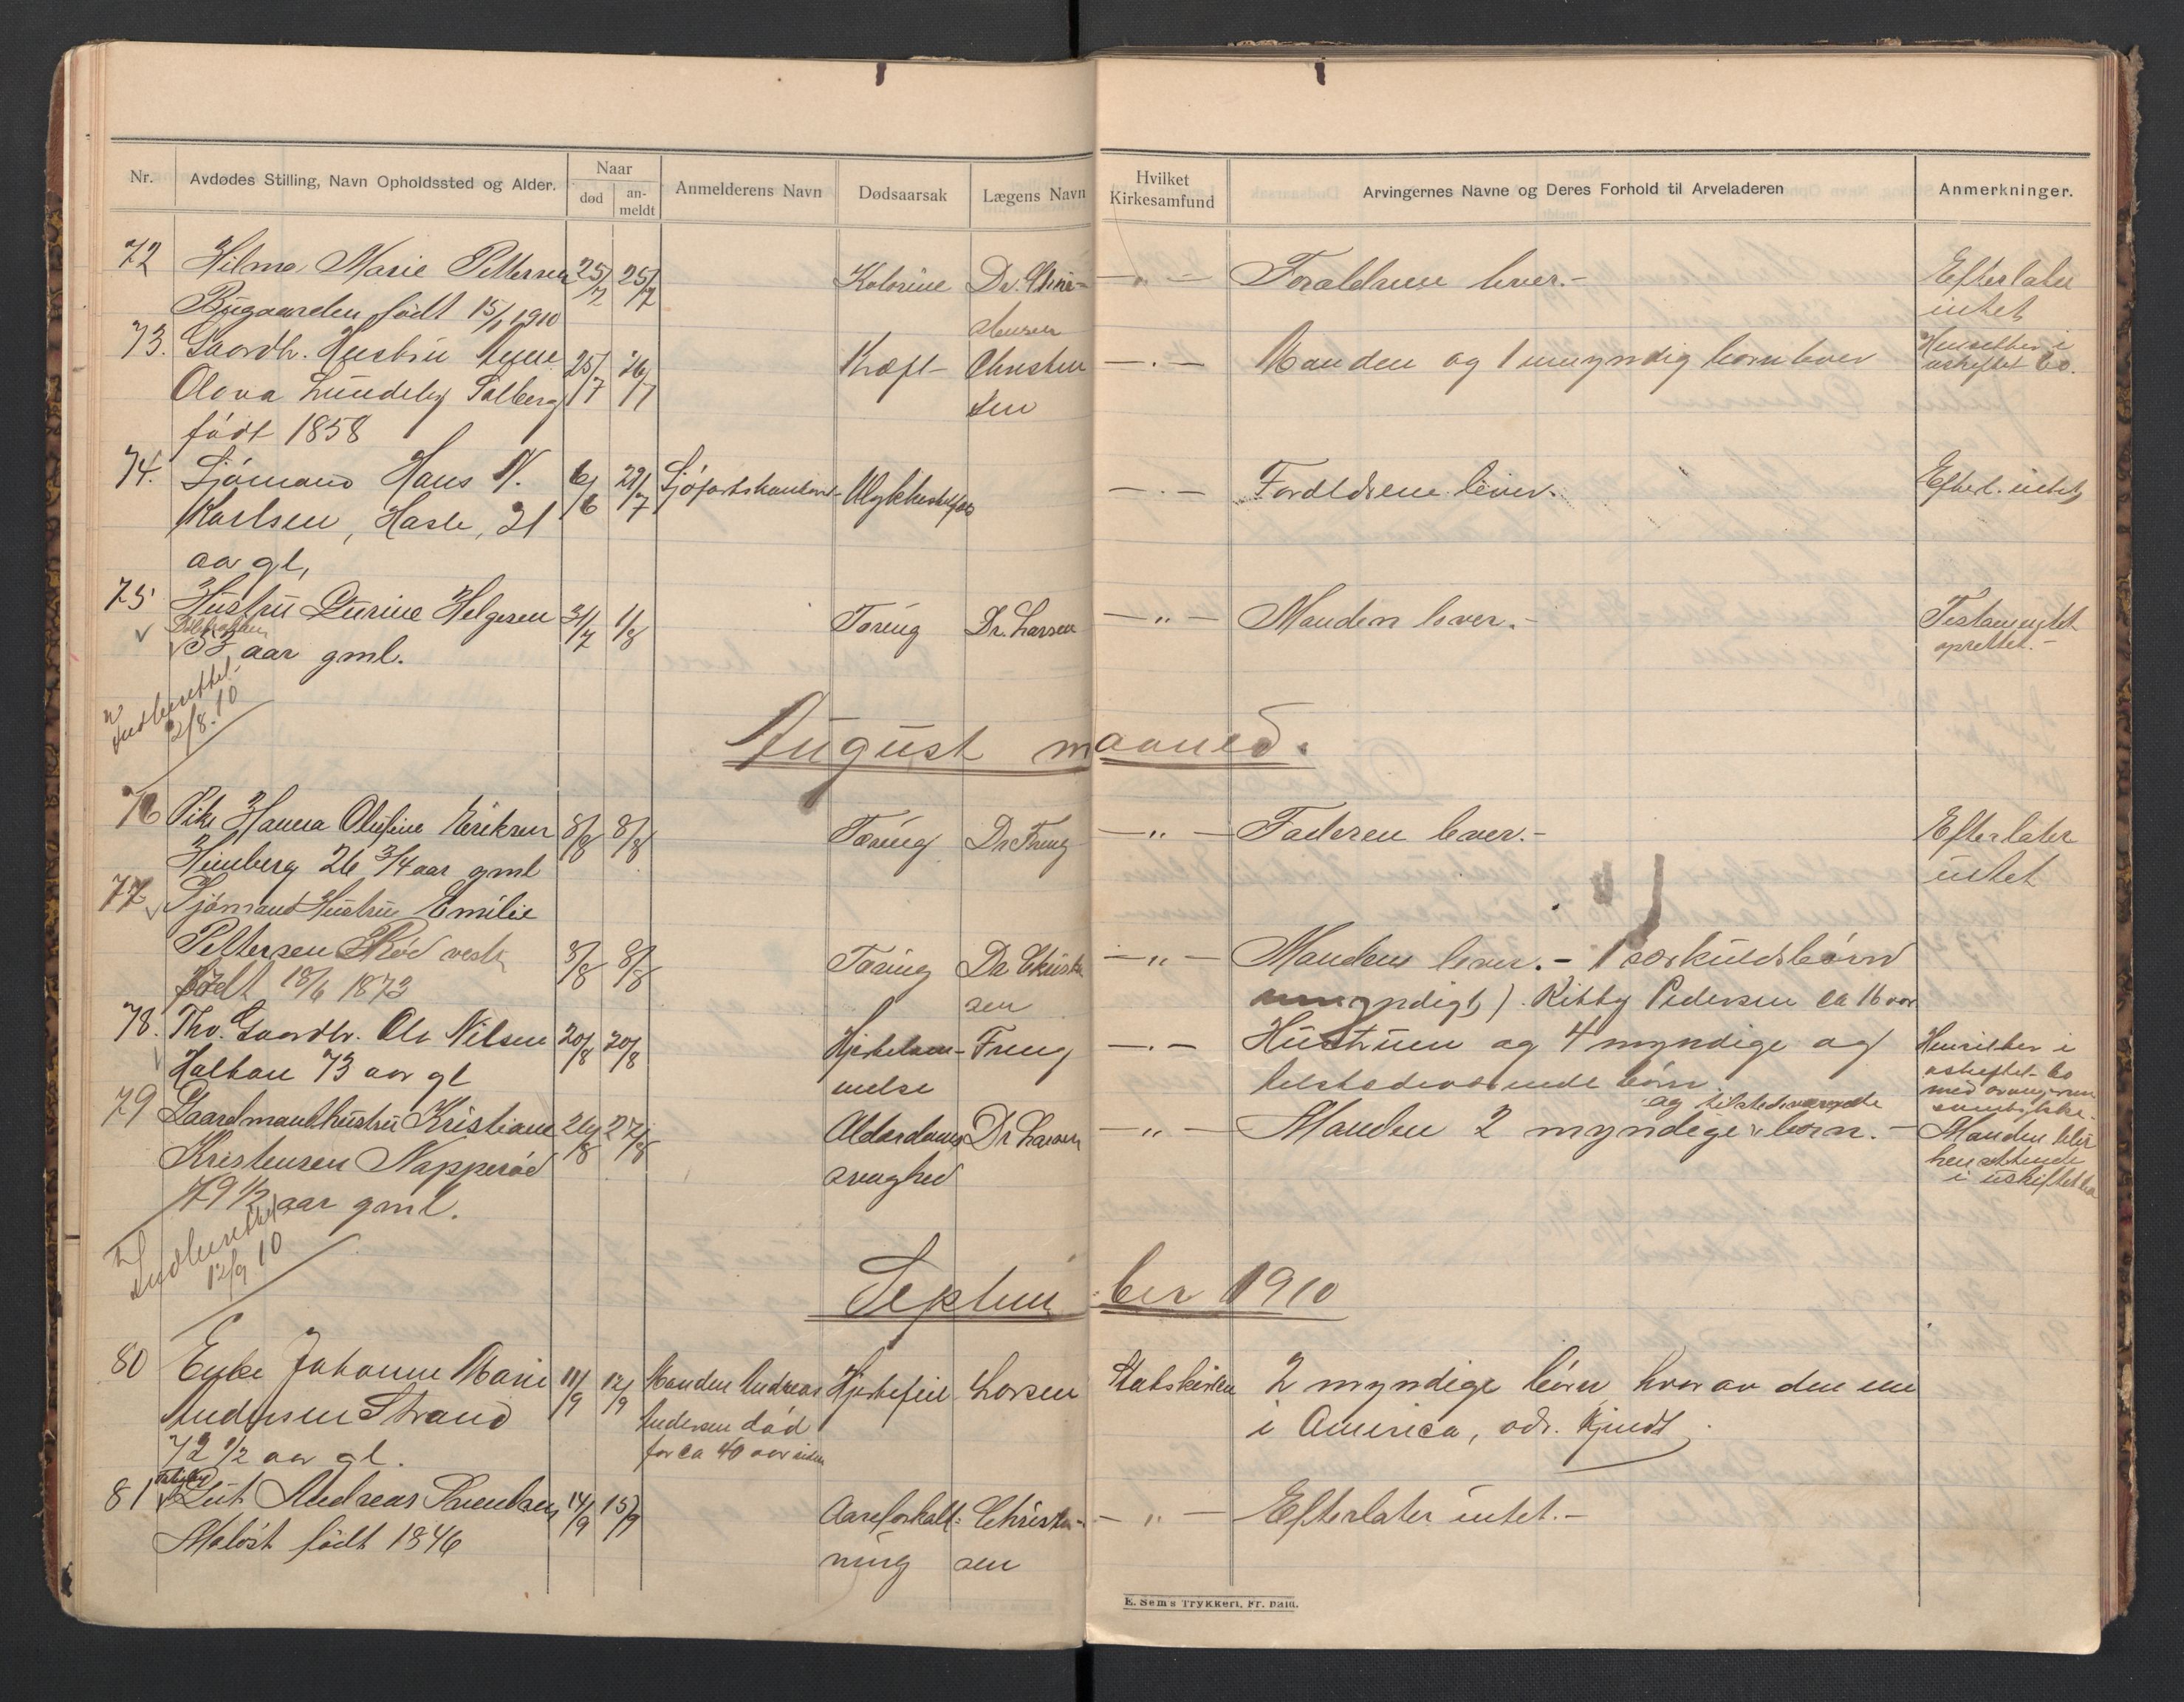 Nr.
Avdødes Stilling, Navn Opholdssted og Alder.
Naar
død
an-
meldt
Anmelderens Navn
Dødsaarsak
Lægens Navn
Hvilket
Kirkesamfund
Arvingernes Navne og Deres Forhold til Arveladeren
Anmerkninger.
72 Hilma Marie Pettersen 25/7 25/7 Kolerine Dr. Chri- — „ — Forældrene lever.- Efterlater
Bygaarden født 15/1 1910 stensen intet
73. Gaardb. Hustru Anne 25/7 26/7 Kræft- Christen — . — Manden og 1 umyndig barn lever Hensitter i
Olava Lundeby Solberg sen uskiftet bo.
født 1858
74. Sjømand Hans N. 6/6 22/7 Sjøfartskontoret Ulykkestilfæl — . — Forældrene lever. Efterl. intet
Karlsen, Hasle, 21
aar gl,
75 Hustru Durine Helgesen 31/7 1/8 Tæring Dr. Larsen — „ — Manden lever.- Testamentet
53 aar gml. oprettet.-
Indberettet
2/8.10
August maaned.
76 Pike Hanna Olufine Eriksen 8/8 8/8 Tæring Dr Freng — „ — Faderen lever.- Efterlater
Himberg 26 3/4 aar gml intet
77 Sjømand Hustru Emilie
Pettersen Rød vestr 3/8 8/8 Tæring Dr Christen — „ — Manden lever. - 1 særkuldsbarn
født 18/6 1873 sen umyndigt). Kitty Pedersen ca 16 aar
78. Thv. Gaardbr. Ole Nilsen 20/8 20/8 Hjertelam- Freng — . — Hustruen og 4 myndige og Hensitter i
Halthau 73 aar gl melse tilstedeværende børn. uskiftet bo
med arvingernes
samtykke.
79 Gaardmandhustru Kristiane 26/8 27/8 Alderdoms Dr Larsen — „ — Manden 2 myndige og tilstedeværende børn. - Manden blir
Kristensen Napperød svaghed hensittende
79 1/2 aar gml. i uskiftet bo
Indberettet
12/9 10
September 1910
80 Enke Johanne Marie 11/9 12/9 Manden Andreas Hjertefeil Larsen Statskirken 2 myndige børn hvor av den ene
Andersen Strand Andersen død i America, adr. kjendt
72 1/2 aar gl. for ca 40 aar siden
81 Andreas Svendsen 14/9 15/9 Aareforkalk= Christen- — „ — Efterlater intet.-
født 1846 ning sen
E. Sem's Trykkeri, Fr. hald.